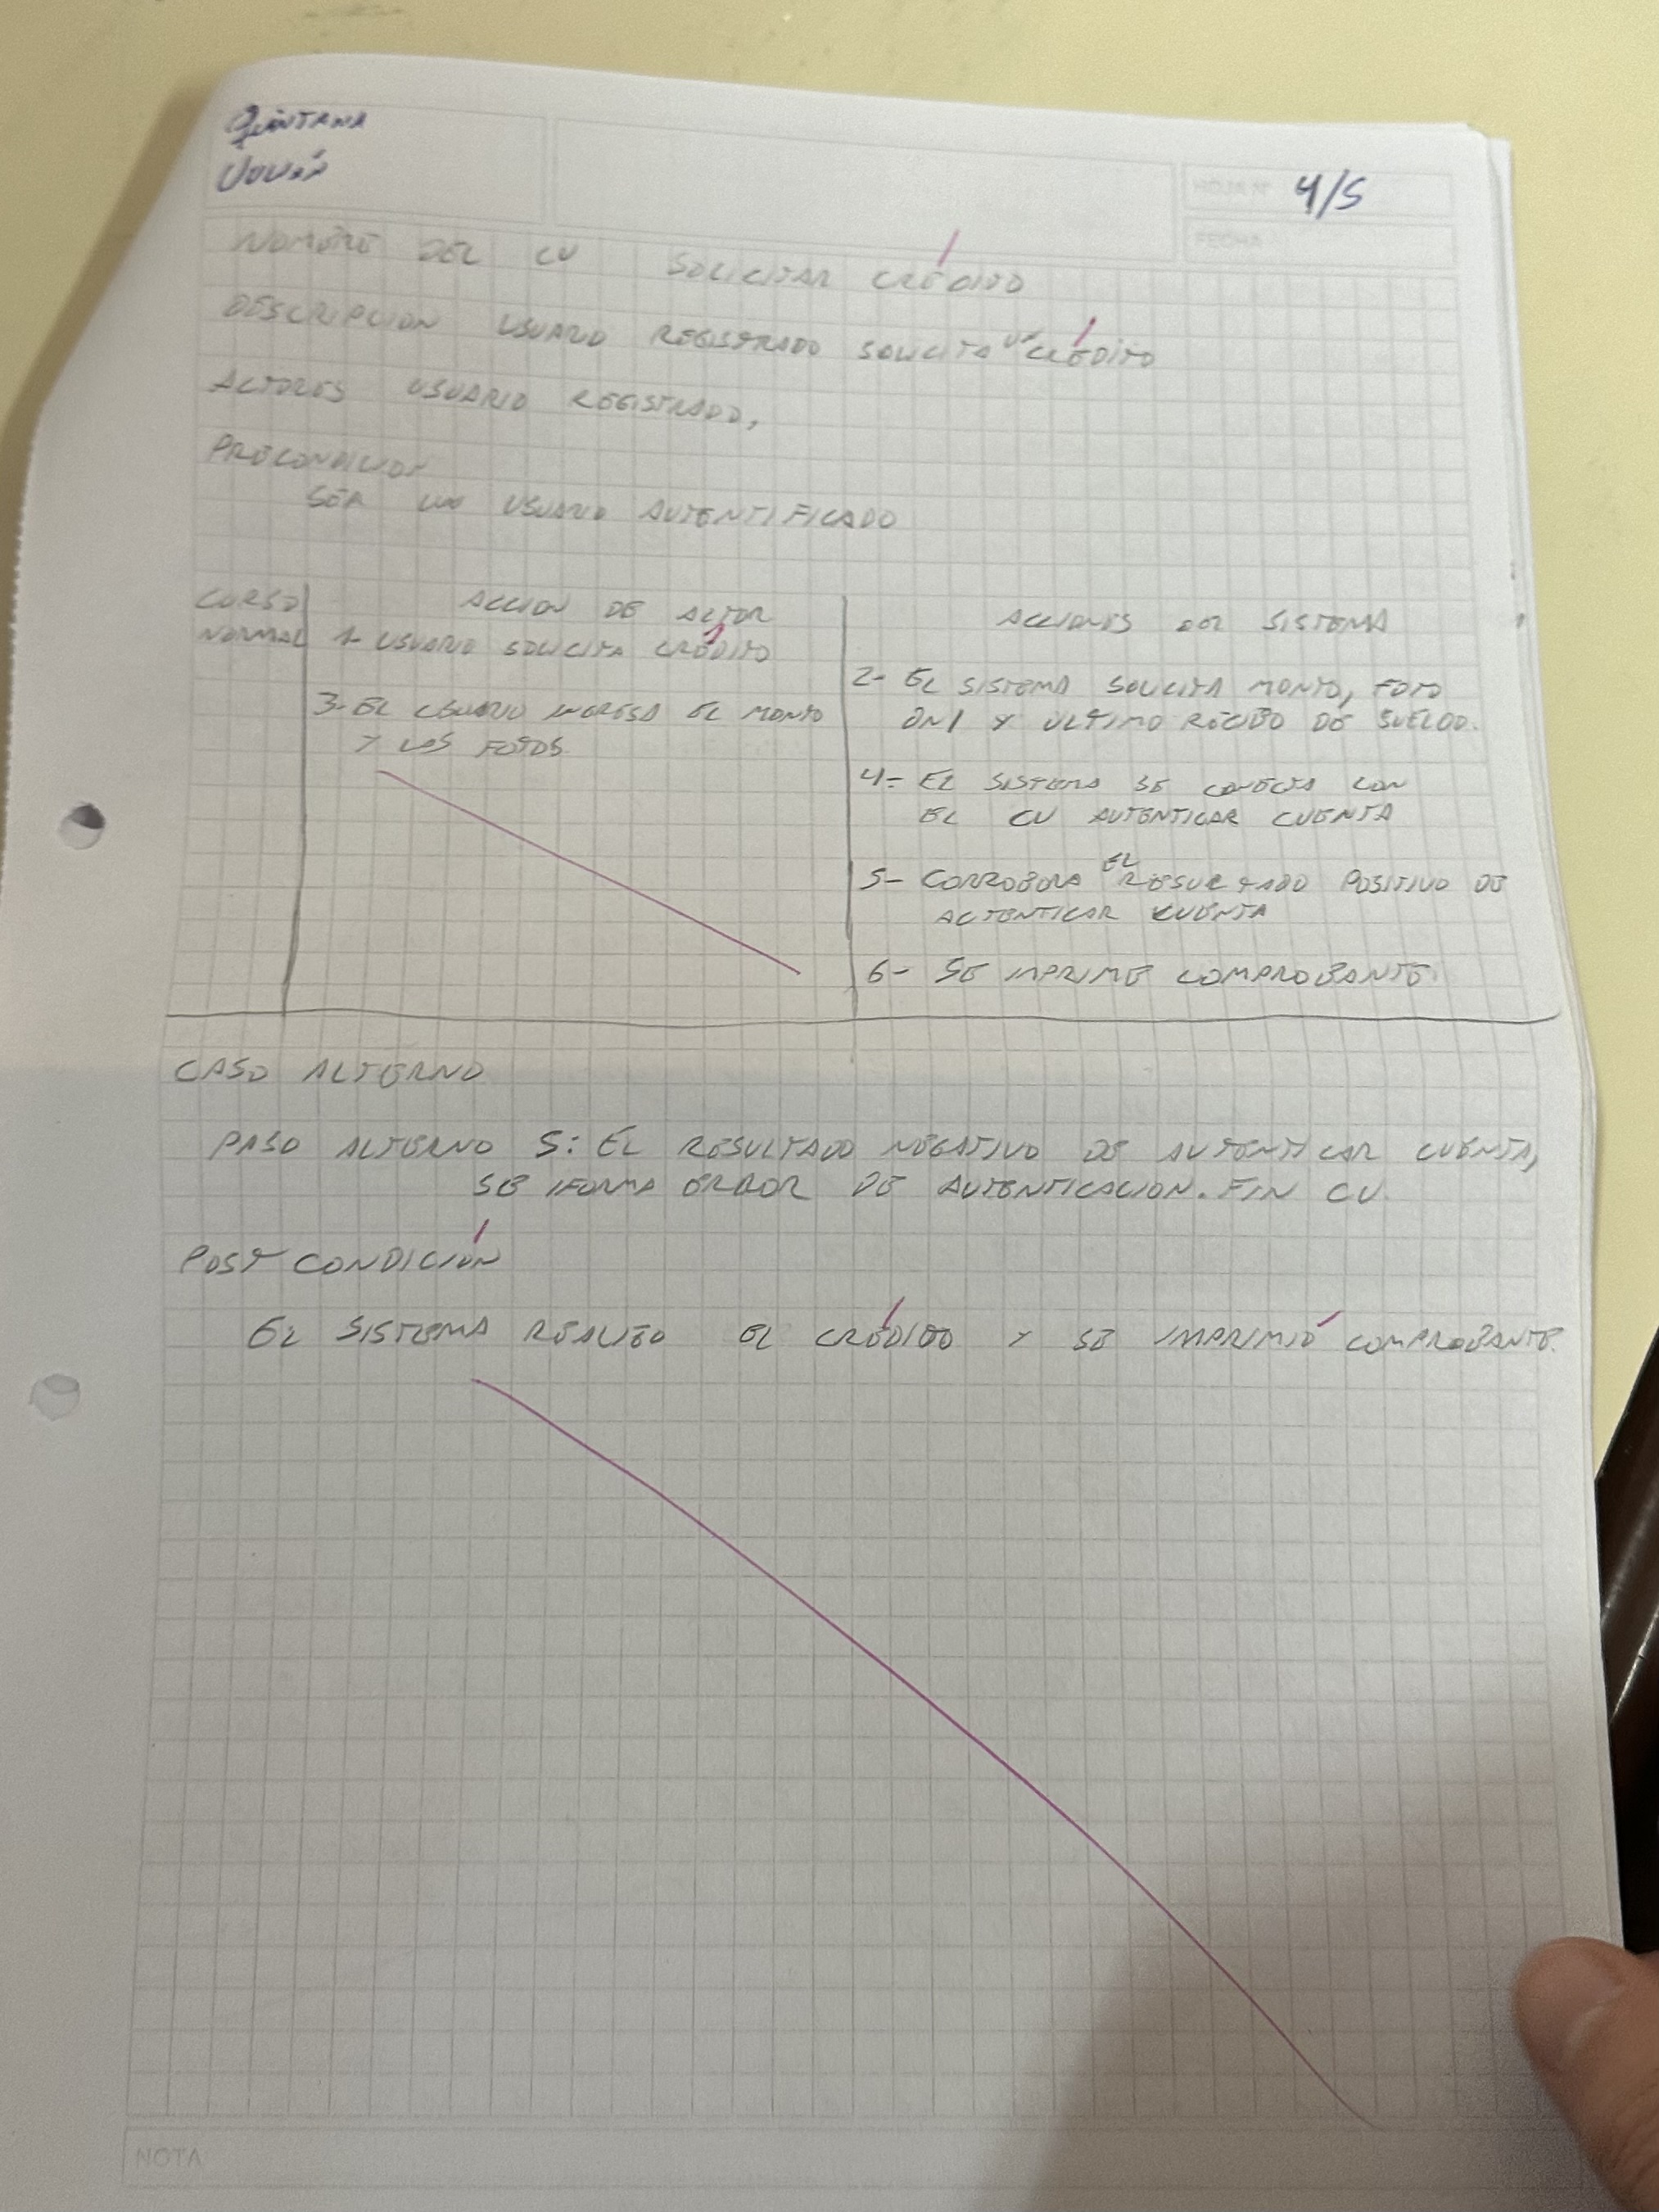 QUINTANA
JULIÁN
HOJA Nº 4/5
FECHA
NOMBRE DEL CU SOLICITAR CRÉDITO
DESCRIPCION USUARIO REGISTRADO SOLICITA UN CRÉDITO
ACTORES USUARIO REGISTRADO,
PRECONDICION
SER UN USUARIO AUTENTIFICADO
CURSO NORMAL
ACCION DE ACTOR
1- USUARIO SOLICITA CRÉDITO
3- EL USUARIO INGRESA EL MONTO
Y LAS FOTOS.
ACCIONES DEL SISTEMA
2- EL SISTEMA SOLICITA MONTO, FOTO
DNI Y ULTIMO RECIBO DE SUELDO.
4- EL SISTEMA SE CONECTA CON
EL CU AUTENTICAR CUENTA
5- CORROBORA EL RESULTADO POSITIVO DE
AUTENTICAR CUENTA
6- SE IMPRIME COMPROBANTE.
CASO ALTERNO
PASO ALTERNO 5: EL RESULTADO NEGATIVO DE AUTENTICAR CUENTA,
SE IFORMA ERROR DE AUTENTICACION. FIN CU.
POST CONDICIÓN
EL SISTEMA REALIZO EL CRÉDITO Y SE IMPRIMIÓ COMPROBANTE.
NOTA